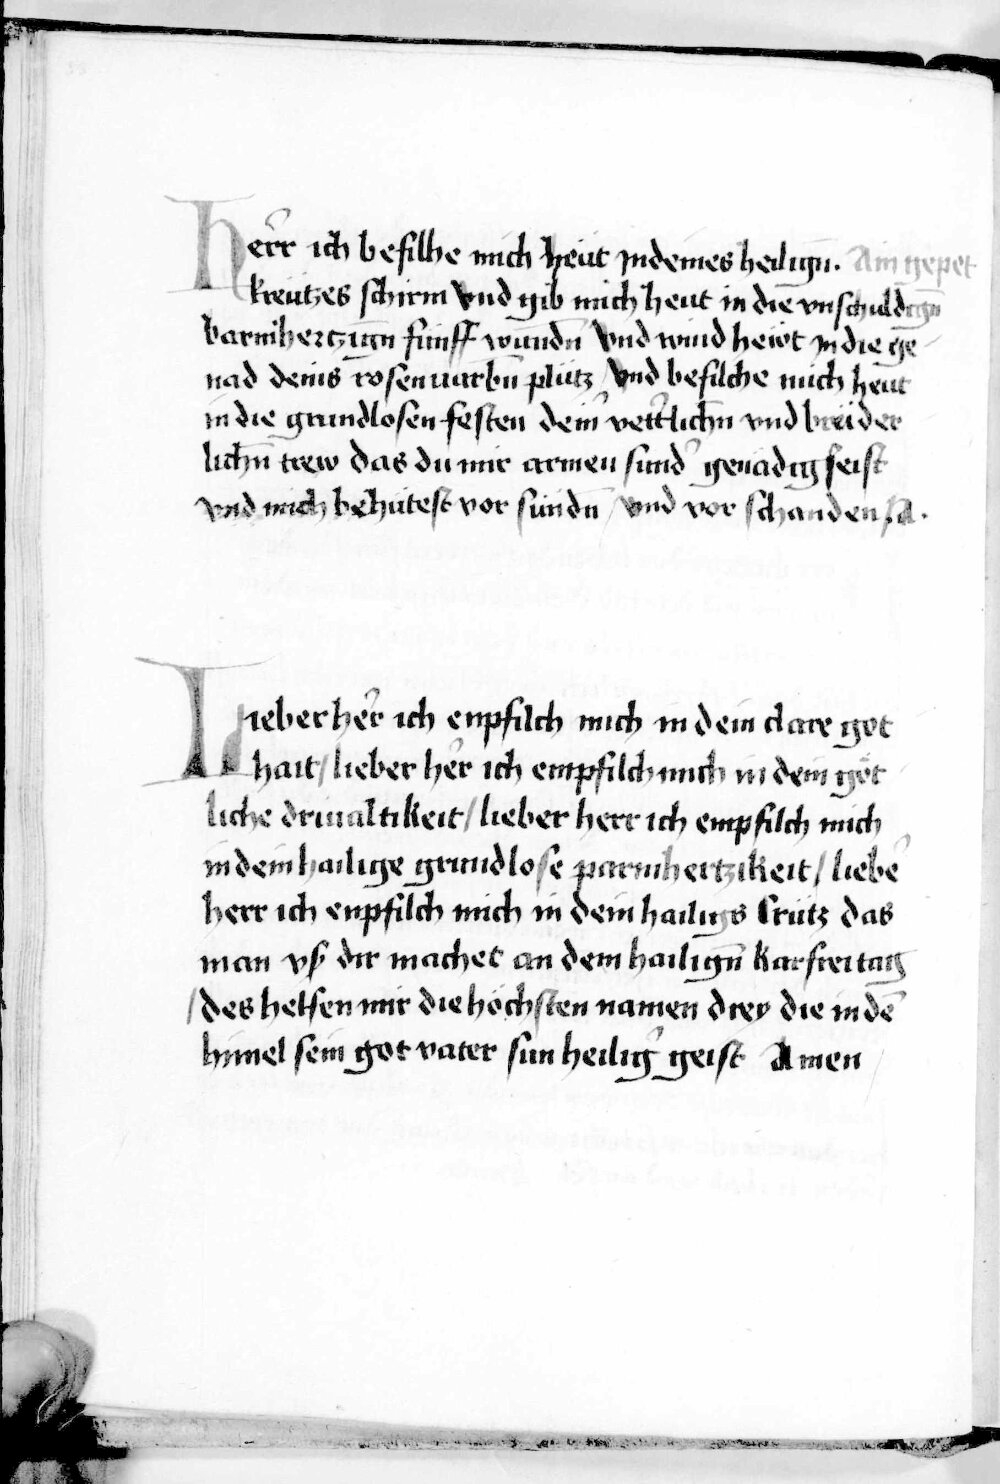 herr ich befilhe mich heut in deines heiligñ. Ain gepet
kreutzes schirm vnd gib mich heut in die vnschuldigñ
barmhertzigñ funff wundñ vnd wind heut in die ge
nad deins rosenuarbñ plütz / vnd befilche mich heut
in die grundlosen festen dein' vetterlichñ vnd brüder
lichñ trew das du mir armen sund' genädig seist
vnd mich behütest vor sündñ / vnd vor schanden / A.
Lieber her ich enpfilch mich in dein clare got
hait / lieber her ich empfilch mich in dein göt
liche driualtikeit / lieber herr ich empfilch mich
in dein hailige grundlose parmhertzikeit / liebe'
herr ich enpfilch mich in dein hailigs krütz das
man vß dir machet an dem hailigñ karfreitag
/ des helfen mir die höchsten namen drey die in dē
himel sein got vater sun heilig' geist Amen